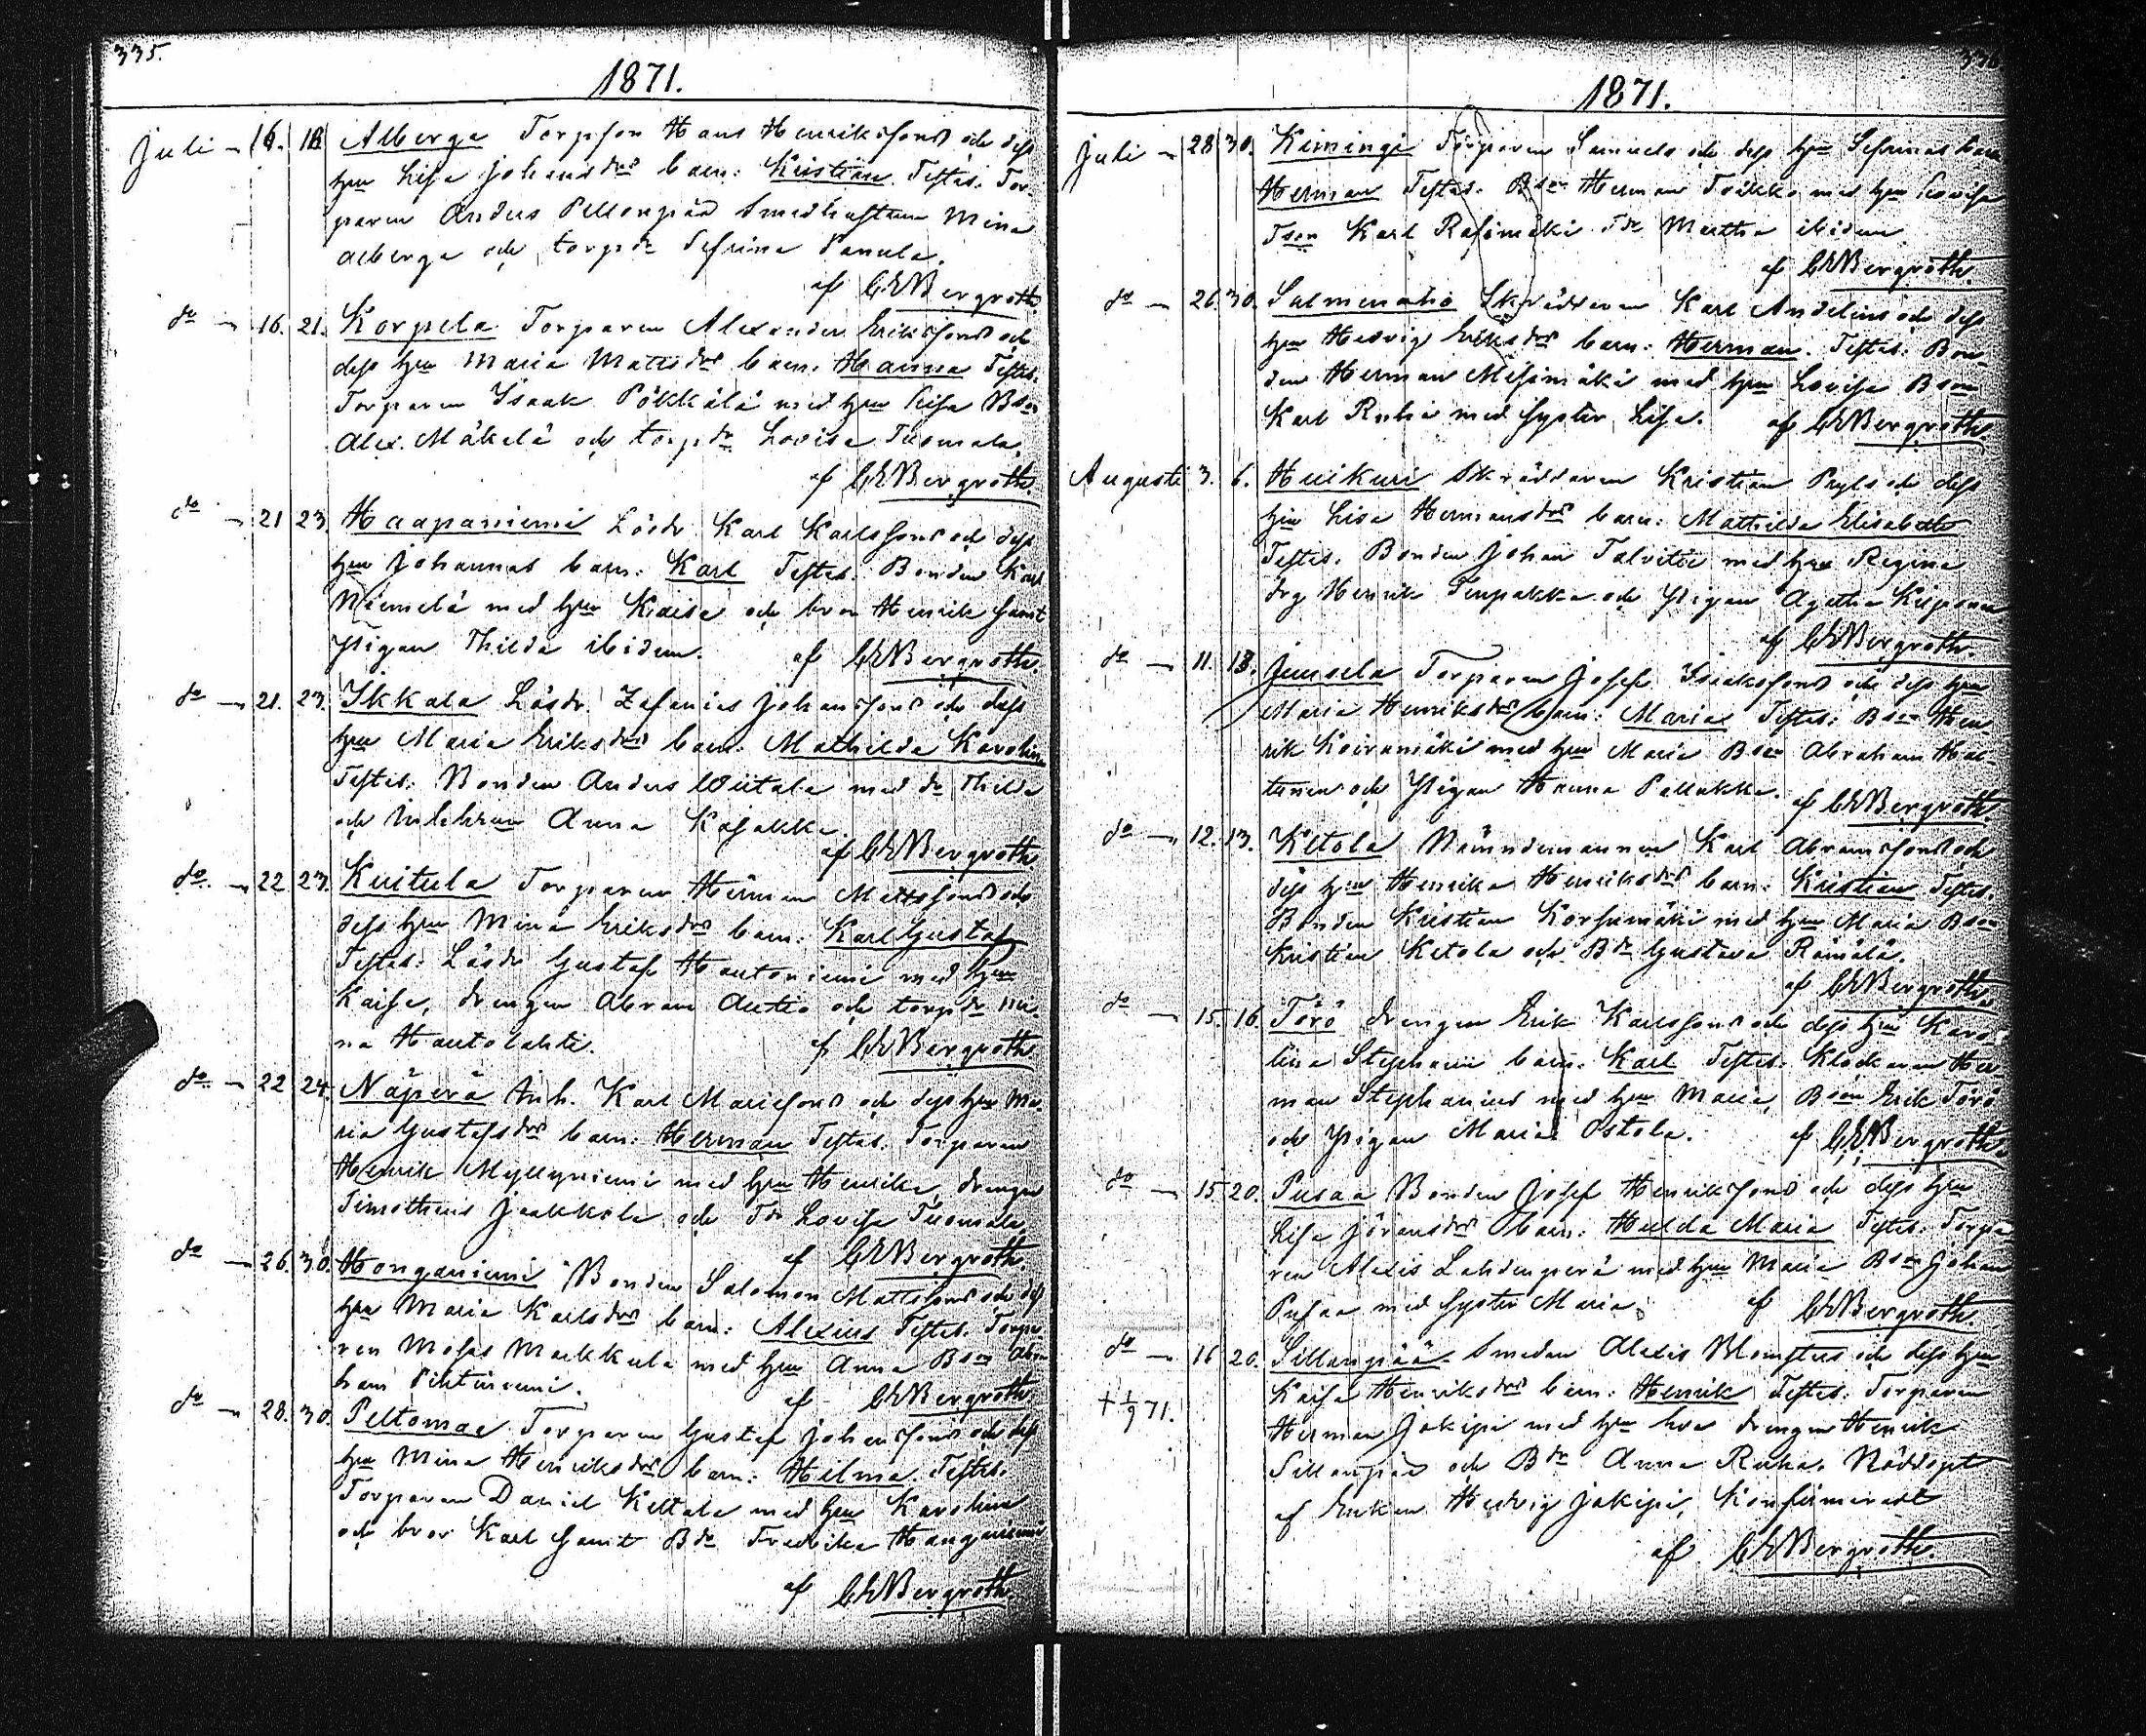 335.
1871.
Juli - 16. 18 Alberga Torpson Hans Henriksson och dess
hru Lisa Johansdr barn: Kristian. Testes. Tor-
paren Anders Sillanpää Smedhustrun Mina
Alberga och torpdr Sefrina Panula.
af CEBergroth.
do - 16. 21. Korpela Torparen Alexander Eriksson och
dess hru Maria Mattsdr barn: Hanna Testes.
Torparen Isaak Pökkälä med hru Lisa Bson
Alex. Mäkelä och torpdr Lovisa Tuomala.
af CEBergroth.
do - 21 23. Haapaniemi Lösdr Karl Karlsson och dess
hru Johannas barn: Karl Testes. Bonden Karl
Niemelä med hru Kaisa och bror Henrik samt
Pigan Thilda ibidem. af CEBergroth.
do - 21. 23. Ikkala Lösdr. Zefanias Johansson och dess
hru Maria Eriksdr barn: Mathilda Karolina
Testes: Bonden Anders Wiitala med dr Thilda
och Anna Kojakka
af CEBergroth.
do. - 22 23. Kuitula Torparen Herman Mattsson och
dess hru Mina Eriksdr barn: Karl Gustaf
Testes: Lösdr Gustaf Hautoniemi med hru
Kaisa, drengen Abram Autio och torpdr Mi-
na Hautolahti. af CEBergroth.
do - 22 24. Näperä Inh. Karl Mariesson och dess hru Ma-
ria Gustafsdr barn: Herman Testes. Torparen
Henrik Myllyniemi med hru Henrika, drengen
Timotheus Jaakkola och Tdr Lovisa Tuomala
af CEBergroth.
do - 26. 30. Honganiemi Bonden Salomon Mattsson och dess
hru Maria Karlsdr barn: Alexius Testes. Torpa-
ren Moses Markkula med hru Anna Bson Abra-
ham
af CEBergroth.
do - 28. 30. Peltomaa Torparen Gustaf Johansson och dess
hru Mina Henriksdr barn: Hilma. Testes.
Torparen Daniel Kettola med hru Karolina
och bror Karl samt Bdr Fredrika Hanganiemi
af CEBergroth.
336.
1871.
Juli - 28 30. Kimingi Torparen Samuels och dess hru Sefrinas barn
Herman Testes. Bson Herman Tsikko med hru Lovisa
Tson Karl Rasimäki Tdr Martha ibidem.
af CEBergroth.
do - 26. 30. Salmenaho Skräddaren Karl Andelins och dess
hru Hedvig Eriksdr barn: Herman. Testes: Bon-
den Herman Mesimäki med hru Lovisa Bson
Karl Ruha med syster Lisa. af CEBergroth.
Augusti 3. 6. Huikuri Skräddaren Kristian Pryls och dess
hru Lisa Hermansdr barn: Mathilda Elisabeth
Testes. Bonden Johan Talvitie med hru Regina
drg Henrik och Pigan Agatha
af CEBergroth.
do - 11. 13. Juusela Torparen Josef Isaksson och dess hru
Maria Henriksdr barn: Maria Testes: Bson Hen-
rik Koiramäki med hru Maria Bson Abraham Hal-
tunen och Pigan Hanna Pallakka. af CEBergroth.
do - 12. 13. Ketola Nämndemannen Karl Abramsson och
dess hru Henrika Henriksdr barn: Kristian Testes.
Bonden Kristian Korhumäki med hru Maria Bson
Kristian Ketola och Bdr Gustava Rämälä.
af CEBergroth.
do - 15. 16. Törö drengen Erik Karlsson och dess hru Karo-
lina Stephanii barn: Karl Testes. Klockaren Her-
man Stephanius med hru Maria, Bson Erik Törö
och Pigan Maria Ostola. af CEBergroth.
do - 15 20. Pusaa Bonden Josef Henriksson och dess hru
Lisa Göransdr barn: Hulda Maria Testes. Torpa-
ren Alexis Lahdenperä med hru Maria Bson Johan
Pusaa med syster Maria. af CEBergroth.
do - 16 20. Sillanpää. Smeden Alexis Blomsters och dess hru
Kaisa Henriksdr barn: Henrik Testes. Torparen
† 1/9 71.
Herman Jokipi med hru Eva drengen Henrik
Sillanpää och Bdr Anna Ruha. Nöddöpt
af Enkan Hedvig Jokipi, Konfirmeradt
af CEBergroth.